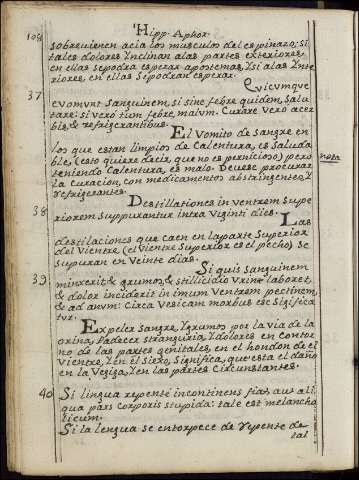 108 Hipp. Aphor.
sobrevienen acia los musculos del espinazo; si
tales dolores Ynclinan a las partes exteriores,
en ellas sepodra esperar apostemas, Y si alas Ynte
riores, en ellas sepodran esperar.
Quicumque
37 evomunt sanguinem, si sine febre quidem, salu
tare: si vero tum febre, malum. Curare vero acer
bis, & refrigerantibus.
El Vomito de Sangre en
los que estan limpios de Calentura, es Saluda
ble, (esto quiere decir que no es pernicioso) pero nota
teniendo Calentura, es malo. Deuese procurar
la curacion, con medicamentos abstringentes, Y
refrigerantes.
Destillationes in ventrem supe
38 riorem suppurantur intra viginti dies. Las
destilaciones que caen en laparte Superior
del Vientre (el Vientre Superior es el pecho) se
supuran en Veinte dias.
Si quis sanguinem
39 minxerit & grumos, & stillicidio Vrine laboret,
& dolor inciderit in imum Ventrem pectinem,
& ad anum: Circa Vesicam morbus esse Sigifica
tur.
Expeler Sangre, Y grumos por la via de la
orina, Padecer stranguria, Y dolores en Contor
no de las partes genitales, en el hondon de el
Vientre, Y en el Siexo, Significa, que esta el daño
en la Vegiga, Y en las partes Circunstantes.
40 Si lingua repente incontinens fiat, aut ali
qua pars corporis stupida: tale est melancho
licum.
Si la lengua se entorpece de repente de
tal